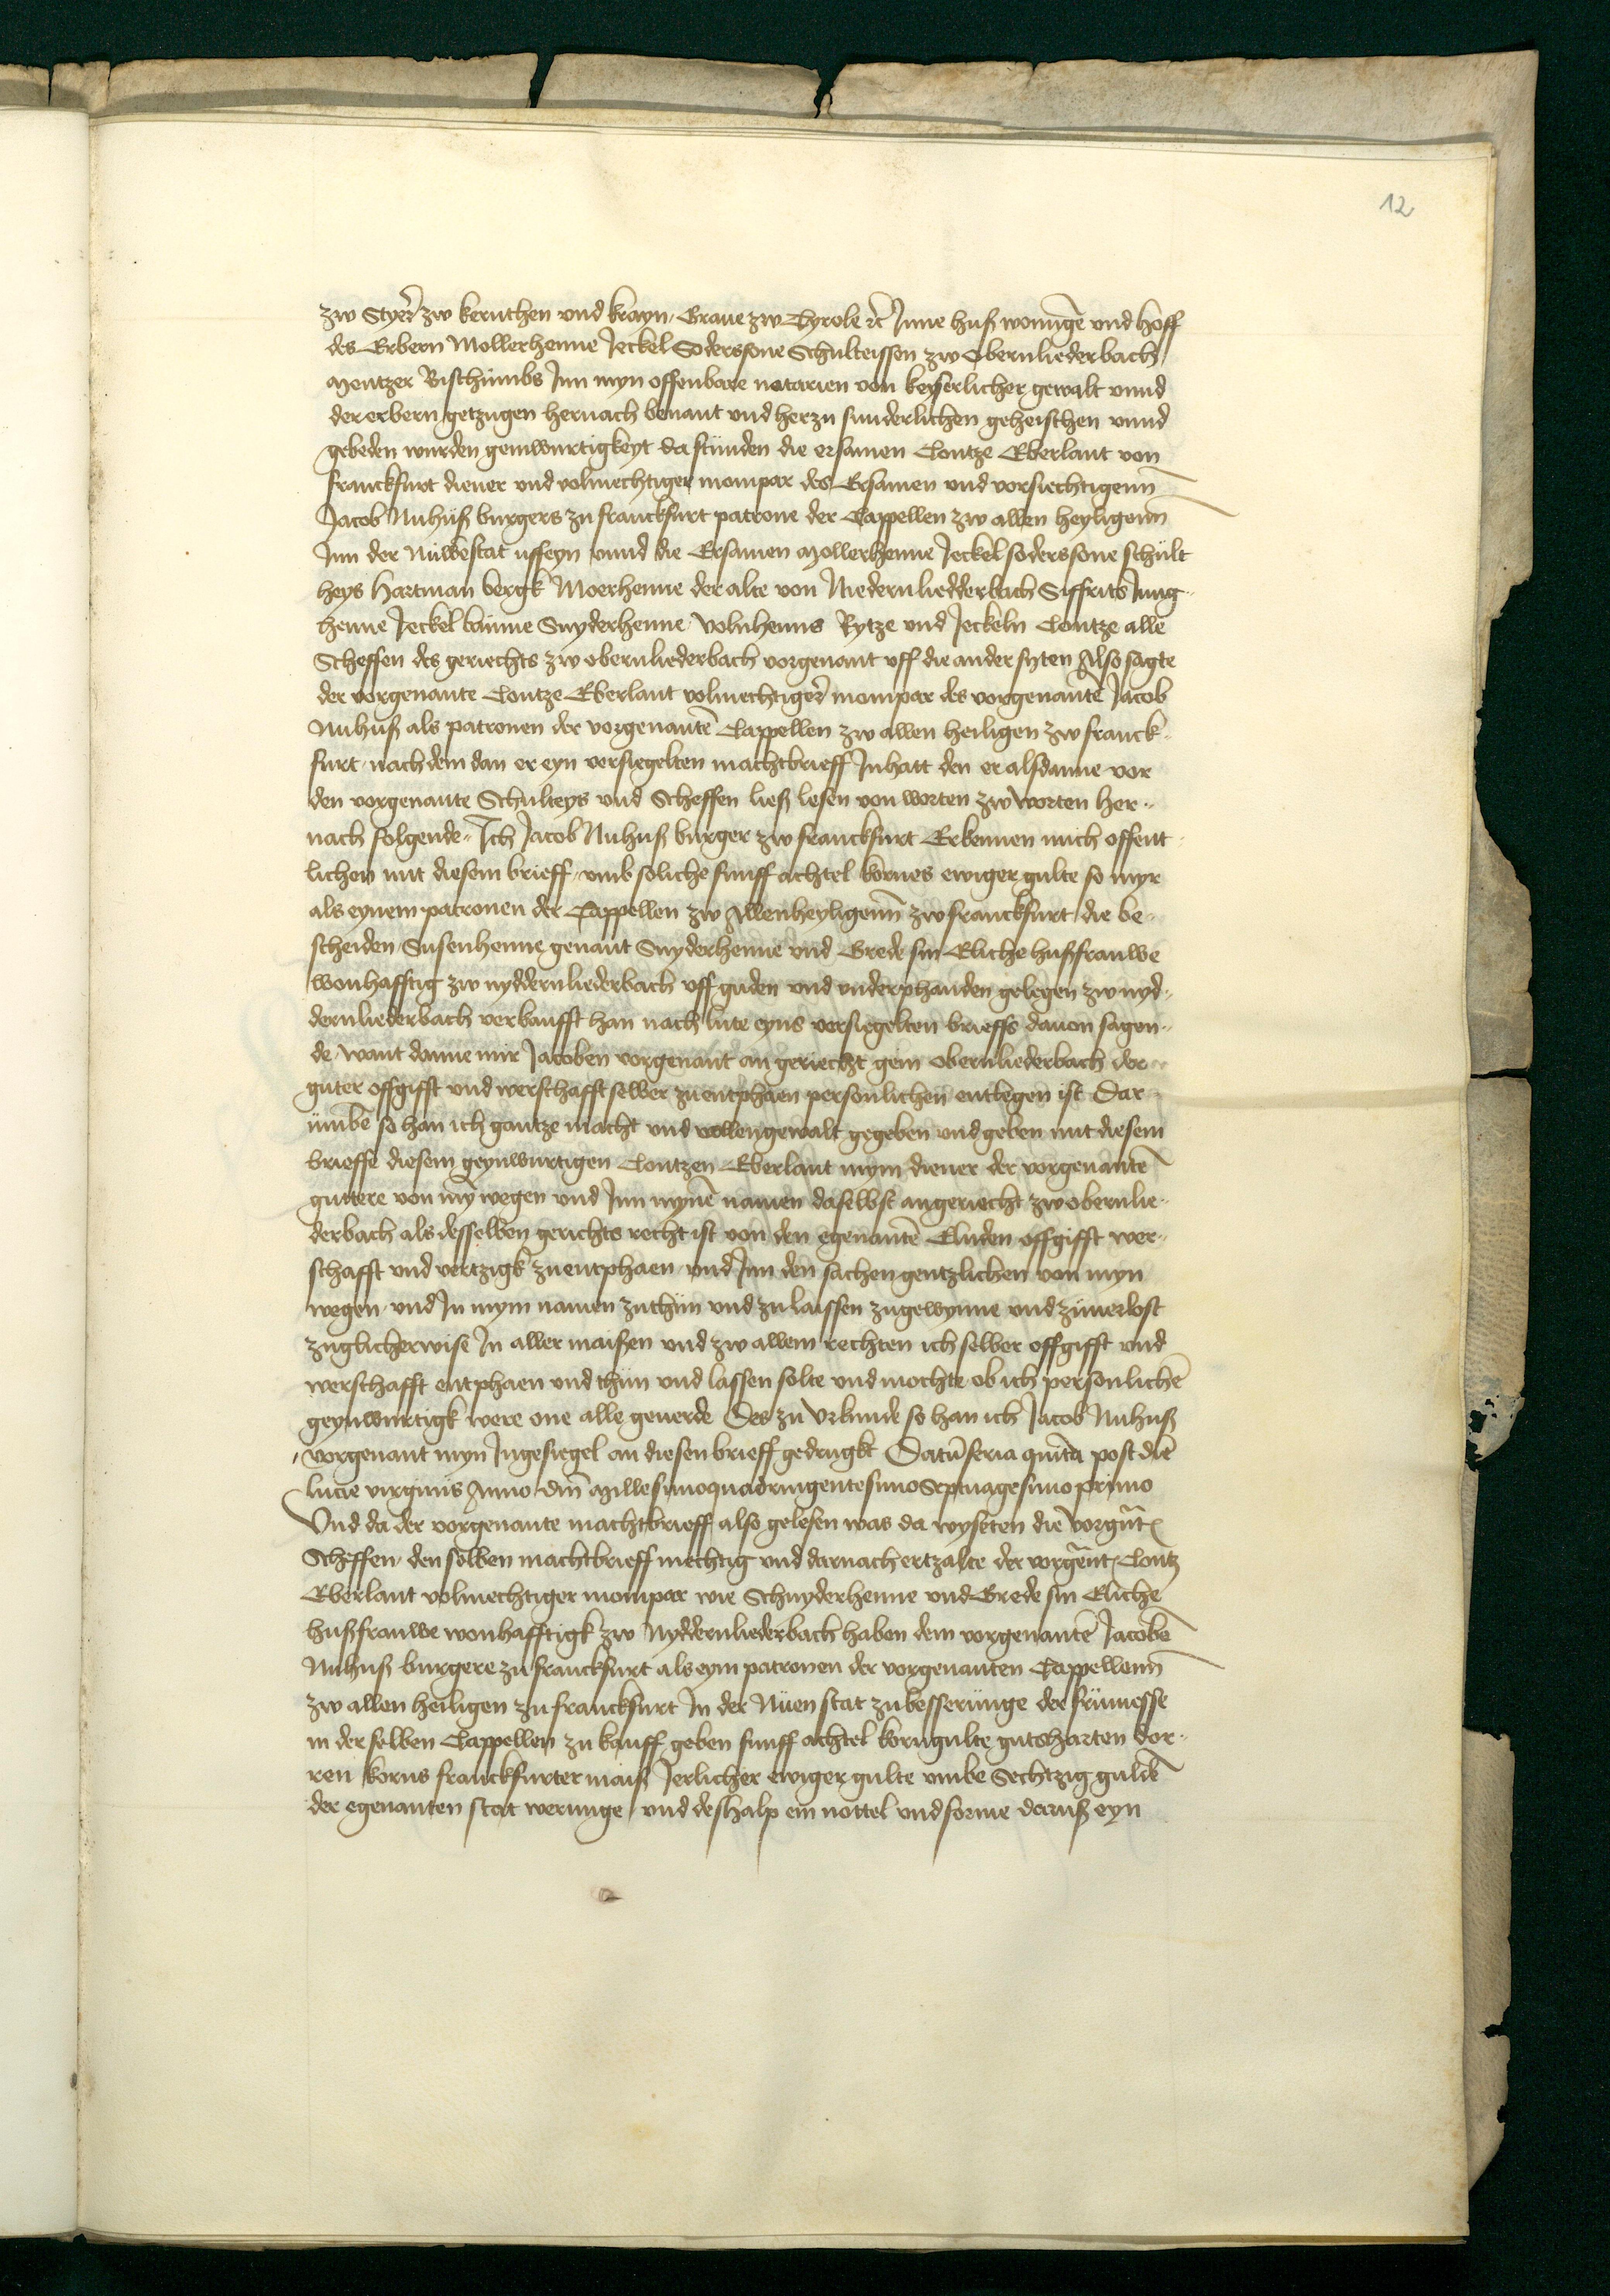 12
zw Styer̃ zw kernthen vnd krayn, Graue zw Tyrole ec̃ Jnne huß wonũge vnd hoff
des Erbern Mollerhenne Jeckel Soderssone Schulteissen zw obernliederbach
Mentzer Bischtumbs Jnn myn offenbare notarien von keyserlicher gewalt vnnd
der erbern getzugen hernach benant vnd herzu sunderlichen geheischen vnnd
gebeden wurden geinwurtigkeyt da stunden die ersamen Contze Eberlant von
franckfurt diener vnd volmechtiger mompar des Ersamen vnd vorsiechtigenn
Jacob Nuhuß burgers zu franckfurt patrone der Cappellen zw allen heyligenn
Jnn der Nuwestat uffeyn vnnd die Ersamen Mollerhenne Jeckel soderssone schult
heys Hartman bergk Moerhenne der alte von Niedernliedderbach Siffrits Jung
henne Jeckel bumme Snyderhenne volnhenns Rytze vnd Jeckeln Contze alle
Scheffen des geriechts zw obernliederbach vorgenant vff die ander syten Also sagte
der vorgenante Contze Eberlant volmechtiger̃ mompar des vorgenantẽ Jacob
Nuhuß als patronen der vorgenantẽ Cappellen zw allen heiligen zw franck
furt, nach dem dan er eyn versiegelten machtbrieff Jnhatt den er alsdanne vor
den vorgenante Schulteys vnd Scheffen ließ lesen von worten zw worten her
nach folgende Jch Jacob Nuhuß burger zw franckfurt Erkennen mich offent
lichen mit diesem brieff, vmb soliche funff achtel kornes ewiger gulte so myr
als eynem patronen der Cappellen zw Allenheyligenn zw franckfurt, die be
scheiden Susenhenne genant Snyderhenne vnd Grede sin Eliche hußfrauwe
wonhafftig zw nyddernliederbach vff guden vnd vnderphanden gelegen zw nyd
dernliederbach verkaufft han nach lute eyns versiegelten brieffs dauon sagen
de, want danne mir Jacoben vorgenant an geriecht gein obernliederbach der
guter offgifft vnd werschafft selber zu entphaen personlichen entlegen ist Dar
vmbe so han ich gantze macht vnd vollengewalt gegeben vnd geben mit diesem
brieffe diesem geynwurtigen Contzen Eberlant mym diener der vorgenantẽ
guttere von mỹ wegen vnd Jnn mynẽ namen daselbst an geriecht zw obernlie
derbach als desselben gerichts recht ist von den egenantẽ Eluden offgifft wer
schafft vnd vertzigk zu entphaen, vnd Jnn den sachen gentzlichen von myn
wegen, vnd Jn mym namen zuthun vnd zu laissen zugewynne vnd zuuerlost
zuglicherwise Jn aller maißen vnd zw allem rechten ich selber offgifft vnd
werschafft entphaen vnd thun vnd lassen solte vnd mochte ob ich personlichẽ
geynwurtigk were one alle geuerde Des zu vrkunde so han ich Jacob Nuhuß
vorgenant myn Jngesiegel an diesen brieff gedrugkt Datũ feria quinta post diẽ
lucie virginis Anno dm̃ Millesimoquadringentesimo Septuagesimo primo
Vnd da der vorgenante machtbrieff also gelesen was da wysten die vorgñt
Scheffen, den selben machtbrieff mechtig vnd darnach ertzalte der vorgẽnt Contz
Eberlant volmechtiger mompar wie Schnyderhenne vnd Grede sin Eliche
hußfrauwe wonhafftigk zw Nyddernliederbach haben dem vorgenantẽ Jacobẽ
Nuhuß burgere zu franckfurt als eym patronen der vorgenanten Cappellenn
zw allen heiligen zu franckfurt Jn der Nuen stat zu besserunge der frumesse
in der selben Cappellen zu kauff geben funff achtel korngulte guts harten dor
ren korns franckfurter maiß Jerlicher ewiger gulte vmbe Sechtzig guldẽ
der egenanten stat werunge, vnd deshalp ein nottel vnd forme daruß eyn